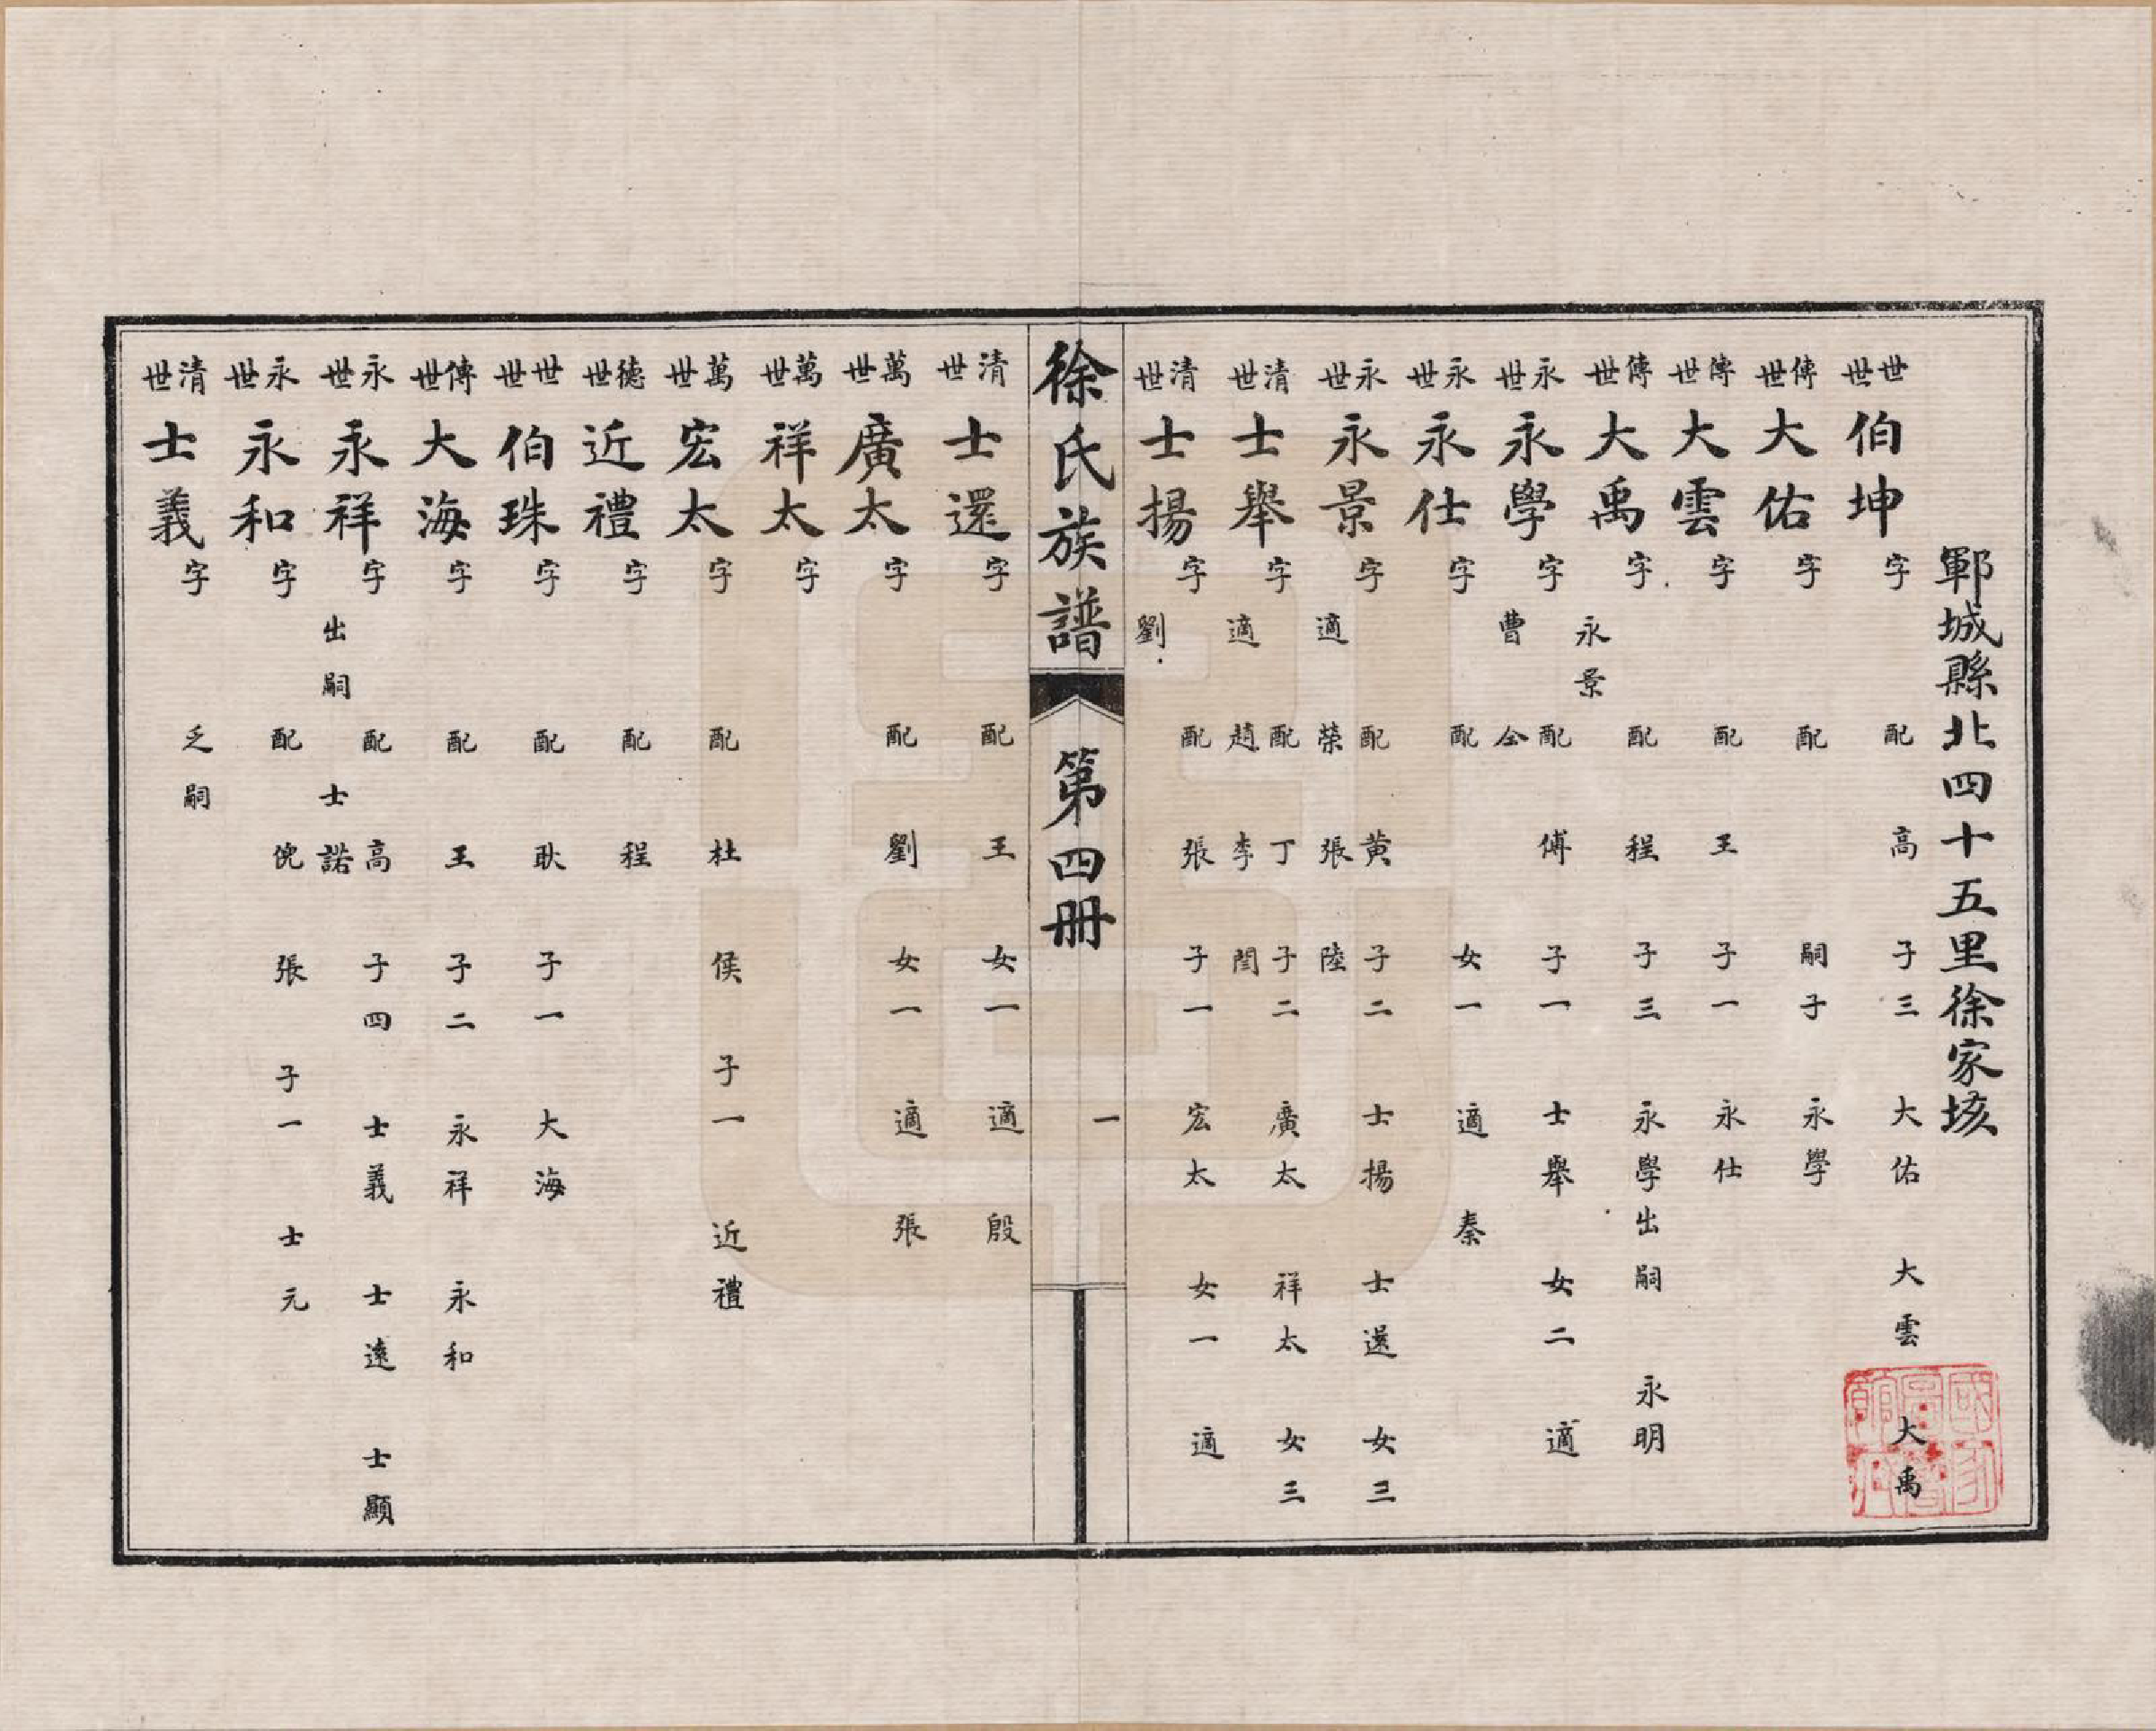 鄆城縣北四十五里徐家垓
世世 伯坤 字 配 高 子三 大佑 大雲 大禹
傳世 大佑 字 配 嗣子 永學
傳世 大雲 字 配 王 子一 永仕
傳世 大禹 字 配 程 子三 永學出嗣 永明
永景
永世 永學 字 配 傅 子一 士舉 女二 適
曹 仝
永世 永仕 字 配 女一 適 秦
永世 永景 字 配 黄 子二 士揚 士還 女三
適 榮 張 陸
清世 士舉 字 配 丁 子二 廣太 祥太 女三
適 趙 李 閆
清世 士揚 字 配 張 子一 宏太 女一 適
劉
徐氏族譜 第四册
一
清世 士還 字 配 王 女一 適 殷
萬世 廣太 字 配 劉 女一 適 張
萬世 祥太 字
萬世 宏太 字 配 杜 侯 子一 近禮
德世 近禮 字 配 程
世世 伯珠 字 配 耿 子一 大海
傳世 大海 字 配 王 子二 永祥 永和
永世 永祥 字 配 高 子四 士義 士遠 士顯
出嗣 士諾
永世 永和 字 配 倪 張 子一 士元
清世 士義 字 乏嗣